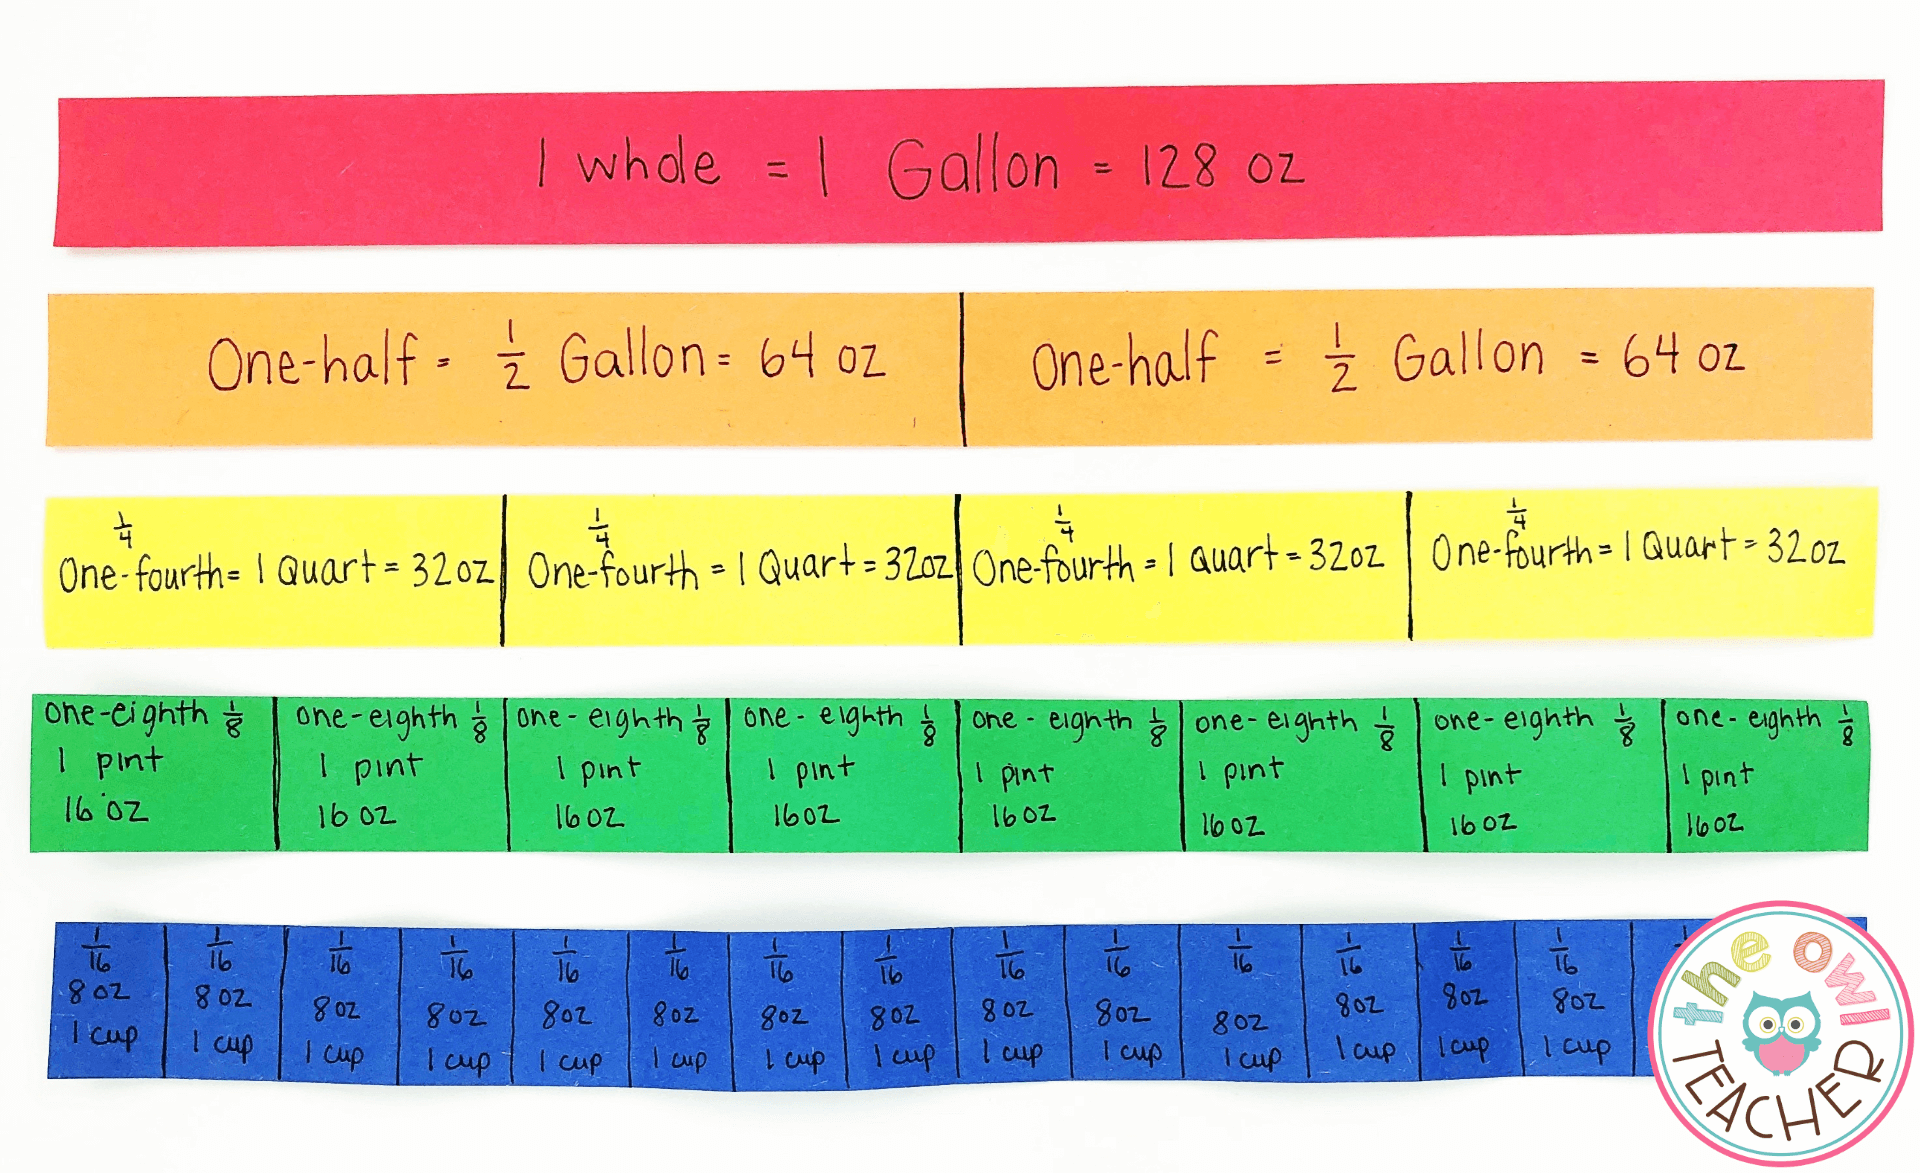 1 whole = 1 Gallon = 128 oz
One-half = 1/2 Gallon = 64 oz
One-half = 1/2 Gallon = 64 oz
1/4
One-fourth = 1 Quart = 32oz
1/4
One-fourth = 1 Quart = 32oz
1/4
One-fourth = 1 Quart = 32oz
1/4
One-fourth = 1 Quart = 32oz
one-eighth 1/8
1 pint
16 oz
one-eighth 1/8
1 pint
16 oz
one-eighth 1/8
1 pint
16 oz
one-eighth 1/8
1 pint
16oz
one-eighth 1/8
1 pint
16 oz
one-eighth 1/8
1 pint
16 oz
one-eighth 1/8
1 pint
16 oz
one-eighth 1/8
1 pint
16oz
1/16
8 oz
1 cup
1/16
8 oz
1 cup
1/16
8 oz
1 cup
1/16
8oz
1 cup
1/16
8oz
1 cup
1/16
8oz
1 cup
1/16
8oz
1 cup
1/16
8oz
1 cup
1/16
8oz
1 cup
1/16
8oz
1 cup
1/16
8oz
1 cup
1/16
8oz
1 cup
1/16
8oz
1 cup
1/16
8oz
1 cup
the owl
TEACHER